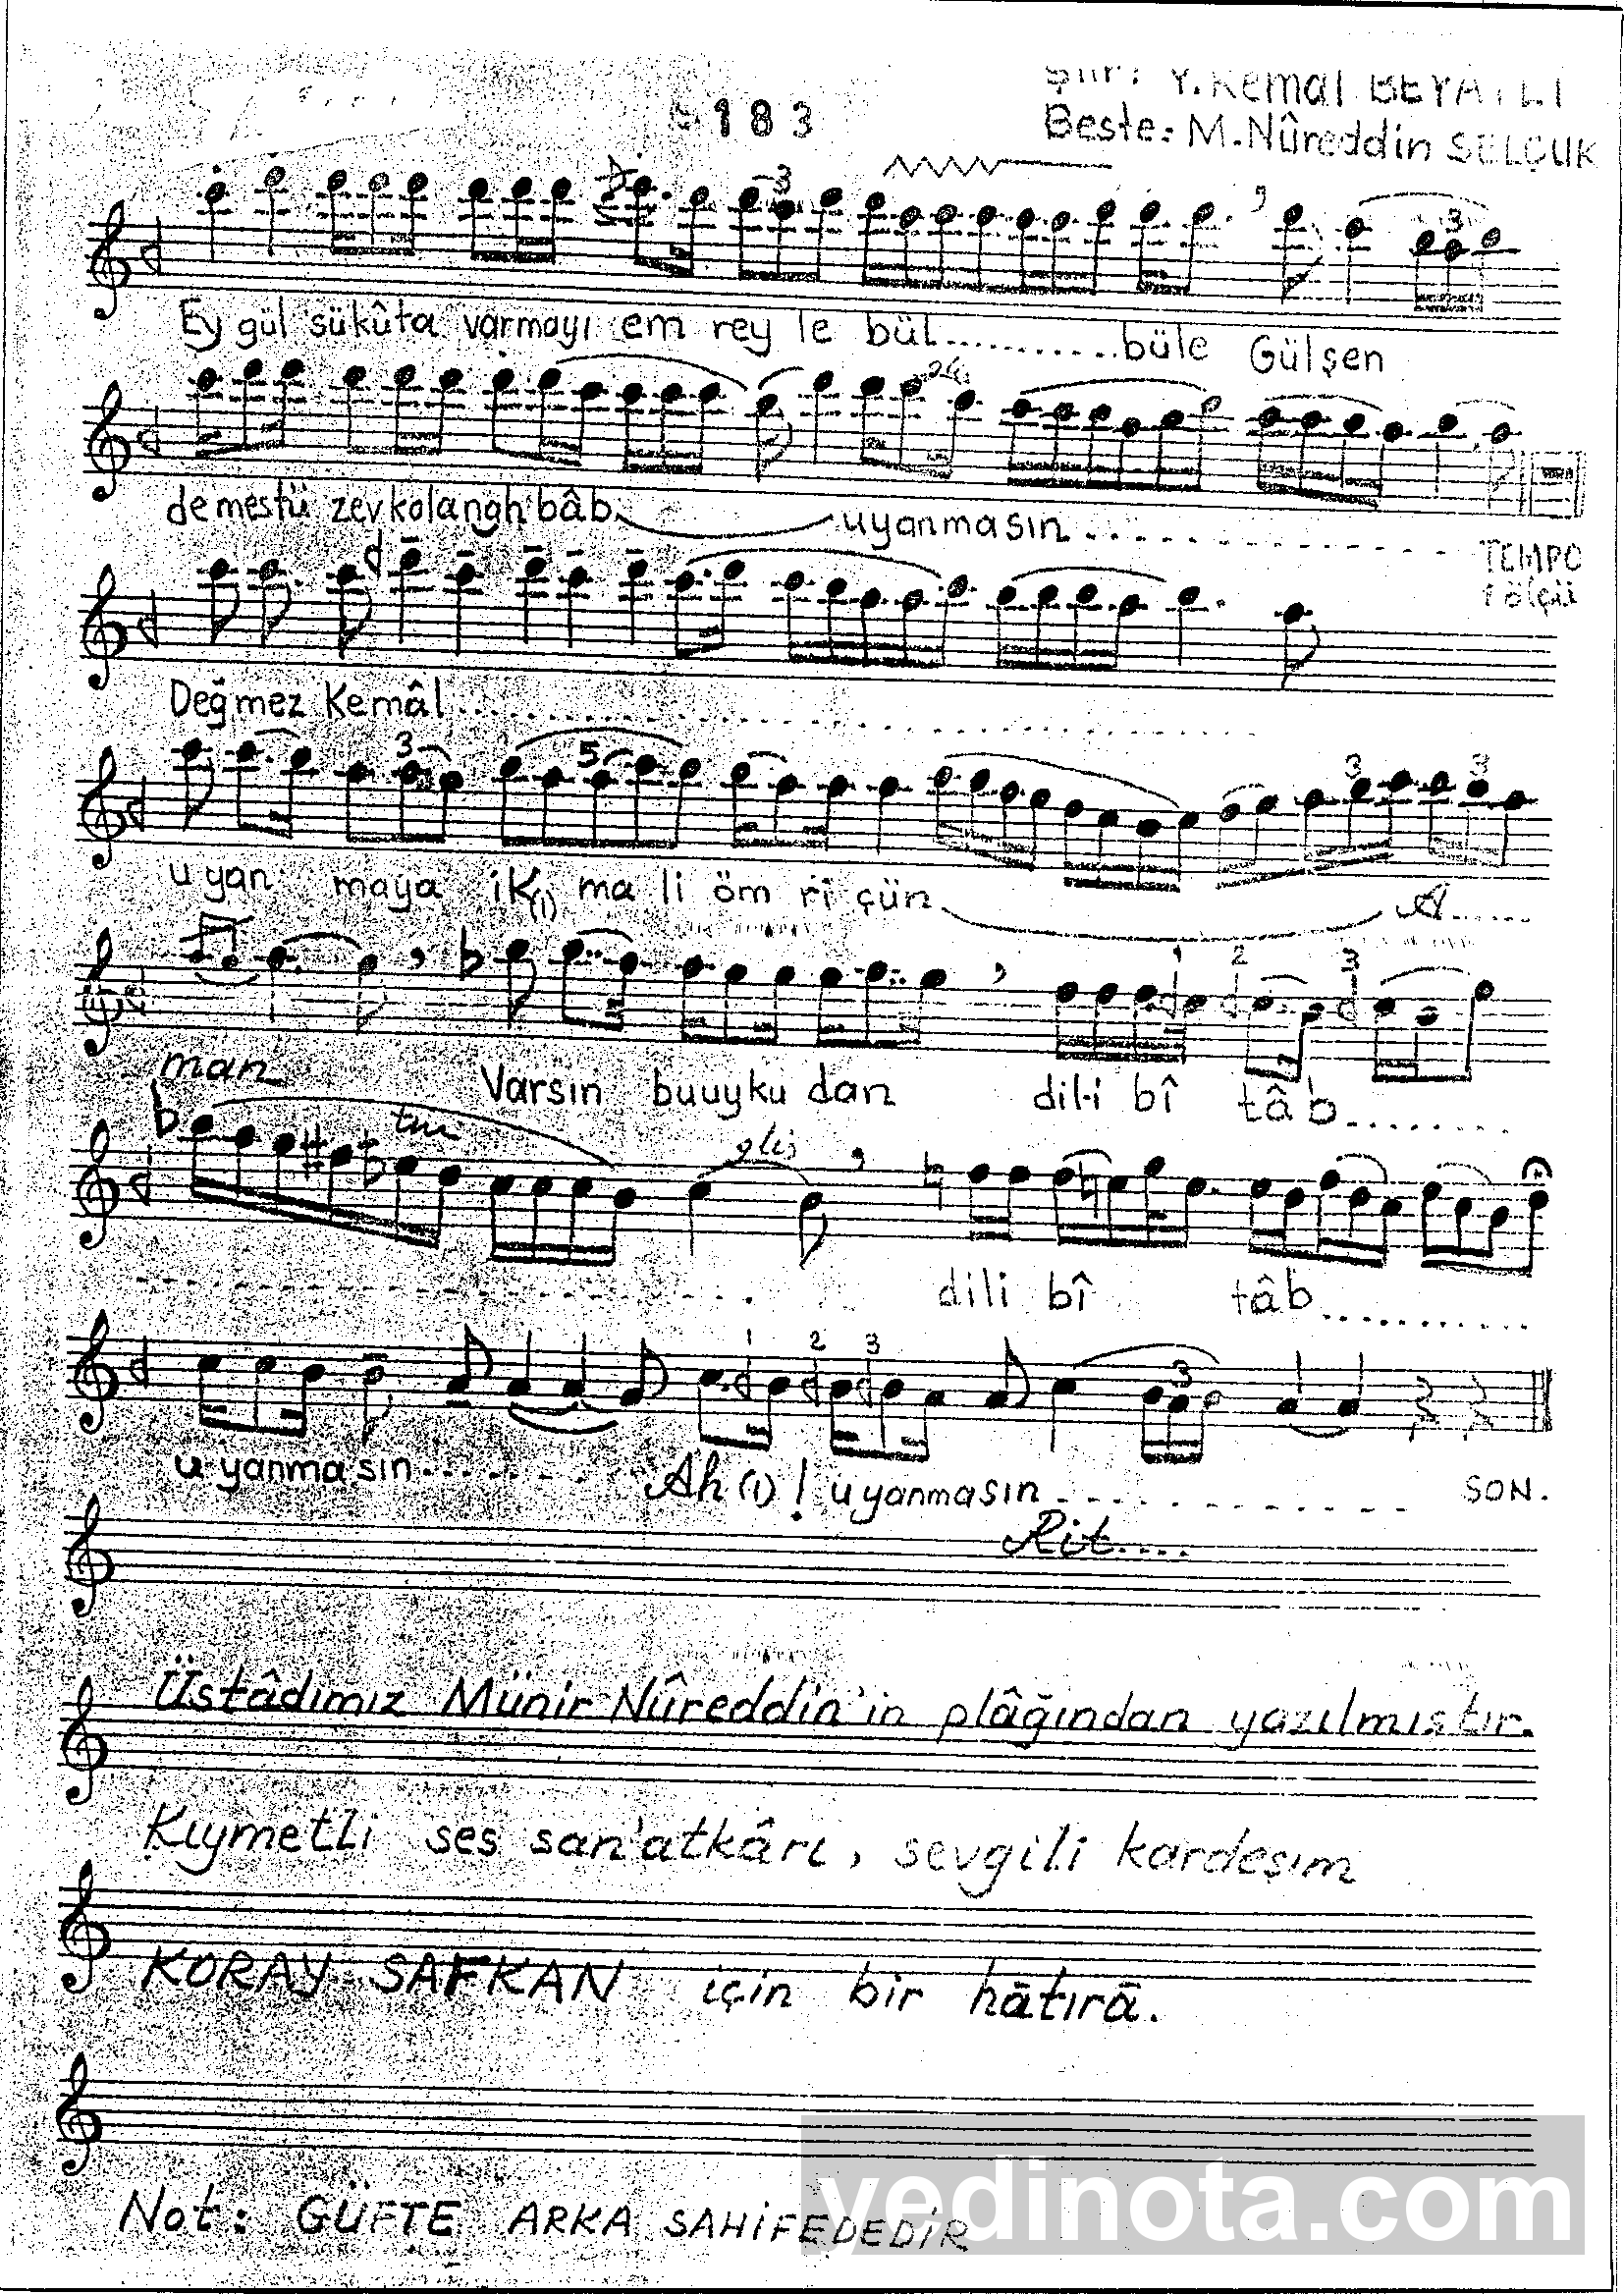 183
Şiir: Y. Kemal BEYATLI
Beste: M. Nûreddin SELÇUK
3
3
Ey gül sükûta varmayı em rey le bül..........büle Gülşen
de mestü zevkolangh bâb uyanmasın..........
TEMPO
1 ölçü
Değmez Kemâl..........
3 5 3 3
uyan maya iK(i) ma li öm ri çün A.....
1 2 3
man Varsın buuyku dan dil-i bî tâb.......
glis
dili bî tâb..........
1 2 3 3
uyanmasın......... Ah (ı) ! uyanmasın.......... SON.
Rit....
Üstâdımız Münir Nûreddin'in plâğından yazılmıştır.
Kıymetli ses san'atkârı, sevgili kardeşim
KORAY SAFKAN için bir hātırā.
Not: GÜFTE ARKA SAHİFEDEDİR
yedinota.com